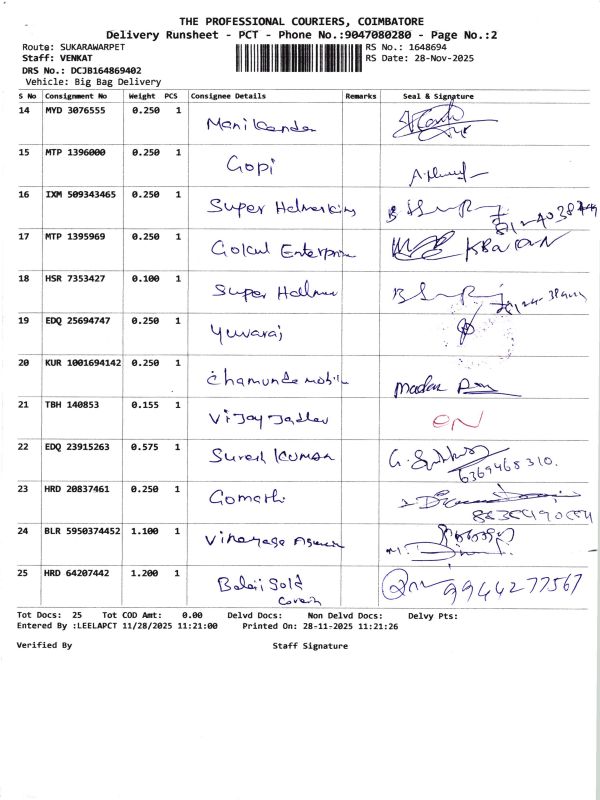 THE PROFESSIONAL COURIERS, COIMBATORE
Delivery Runsheet - PCT - Phone No.:9047080280 - Page No.:2
Route: SUKARAWARPET RS No.: 1648694
Staff: VENKAT RS Date: 28-Nov-2025
DRS No.: DCJB164869402
Vehicle: Big Bag Delivery
S No Consignment No Weight PCS Consignee Details Remarks Seal & Signature
14 MYD 3076555 0.250 1 Manikandan
15 MTP 1396000 0.250 1 Gopi
16 IXM 509343465 0.250 1 Super
17 MTP 1395969 0.250 1 Gokul Enterprise
18 HSR 7353427 0.100 1 Super
19 EDQ 25694747 0.250 1 Yuvaraj
20 KUR 1001694142 0.250 1 Chamunde mobile Madan
21 TBH 140853 0.155 1 Vijay Jadhav ON
22 EDQ 23915263 0.575 1 Suresh Kumar
6369468310.
23 HRD 20837461 0.250 1 Gomathi
24 BLR 5950374452 1.100 1 Vinayaga
25 HRD 64207442 1.200 1 Balaji Gold 9944277567
Tot Docs: 25 Tot COD Amt: 0.00 Delvd Docs: Non Delvd Docs: Delvy Pts:
Entered By :LEELAPCT 11/28/2025 11:21:00 Printed On: 28-11-2025 11:21:26
Verified By Staff Signature